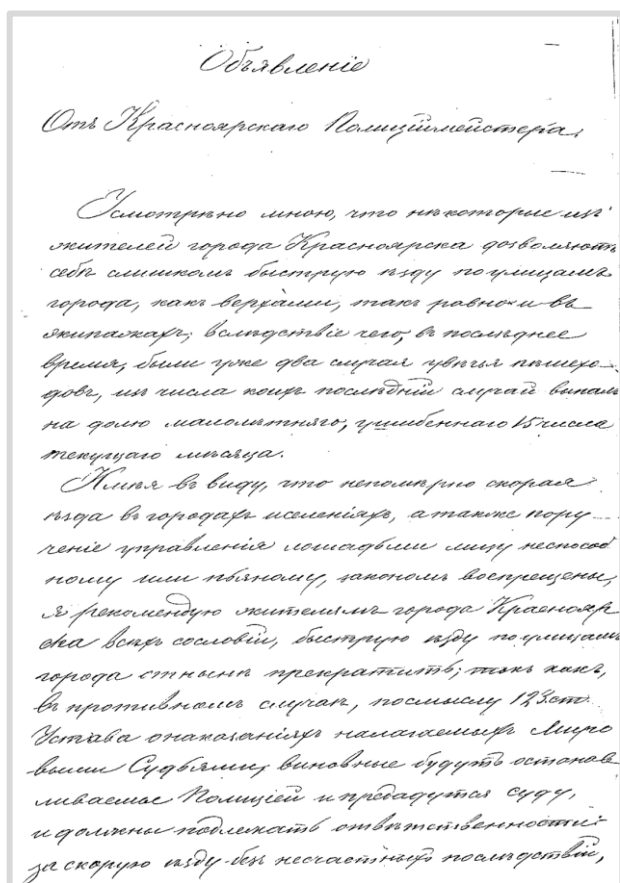 Объявленіе
Отъ Красноярскаго Полиціймейстера.
Усмотрѣно мною, что нѣкоторые изъ
жителей города Красноярска дозволяютъ
себѣ слишкомъ быструю ѣзду по улицамъ
города, какъ верхами, такъ равно и въ
экипажахъ; вслѣдствіе чего, въ послѣднее
время, были уже два случая увѣчья пѣшехо-
довъ, изъ числа коихъ послѣдній случай выпалъ
на долю малолѣтняго, ушибеннаго 15 числа
текущаго мѣсяца.
Имѣя въ виду, что непомѣрно скорая
ѣзда въ городахъ и селеніяхъ, а также пору-
ченіе управленія лошадьми лицу неспособ
ному или пьяному, закономъ воспрещены,
я рекомендую жителямъ города Краснояр
ска всѣхъ сословій, быструю ѣзду по улицамъ
города отнынѣ прекратить; такъ какъ,
въ противномъ случаѣ, по смыслу 123 ст.
Устава о наказаніяхъ налагаемыхъ Миро
выми Судьями, виновные будутъ останав
ливаемы Полиціей и предадутся суду,
и должны подлежать отвѣтственности:
за скорую ѣзду безъ несчастныхъ послѣдствій,